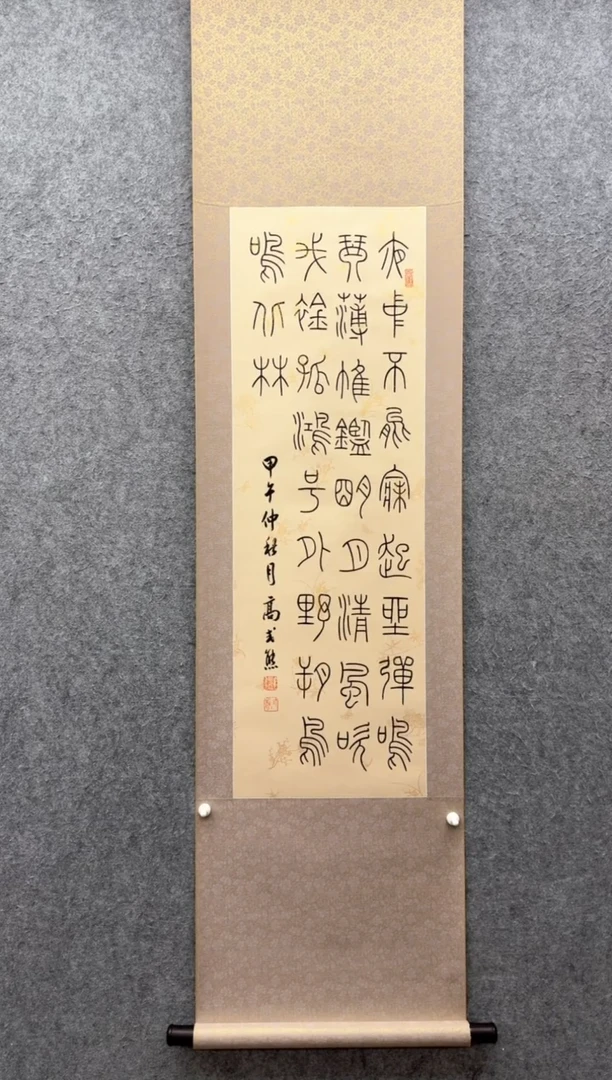 夜中不能寐起坐彈鳴
琴薄帷鑑明月清風吹
我襟孤鴻号外野朔鳥
鳴北林
甲午仲秋月高式熊